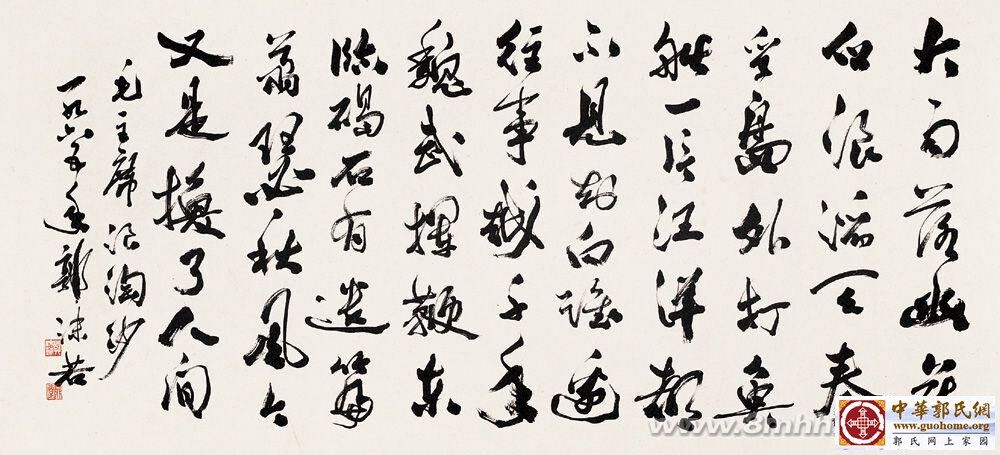 大雨落幽燕
白浪滔天秦
皇島外打魚
船一片汪洋都
不見知向誰邊
往事越千年
魏武揮鞭東
臨碣石有遺篇
蕭瑟秋風今
又是換了人間
毛主席浪淘沙
一九六五年郭沫若
中華郭氏網
www.guohome.org
郭氏网上家园